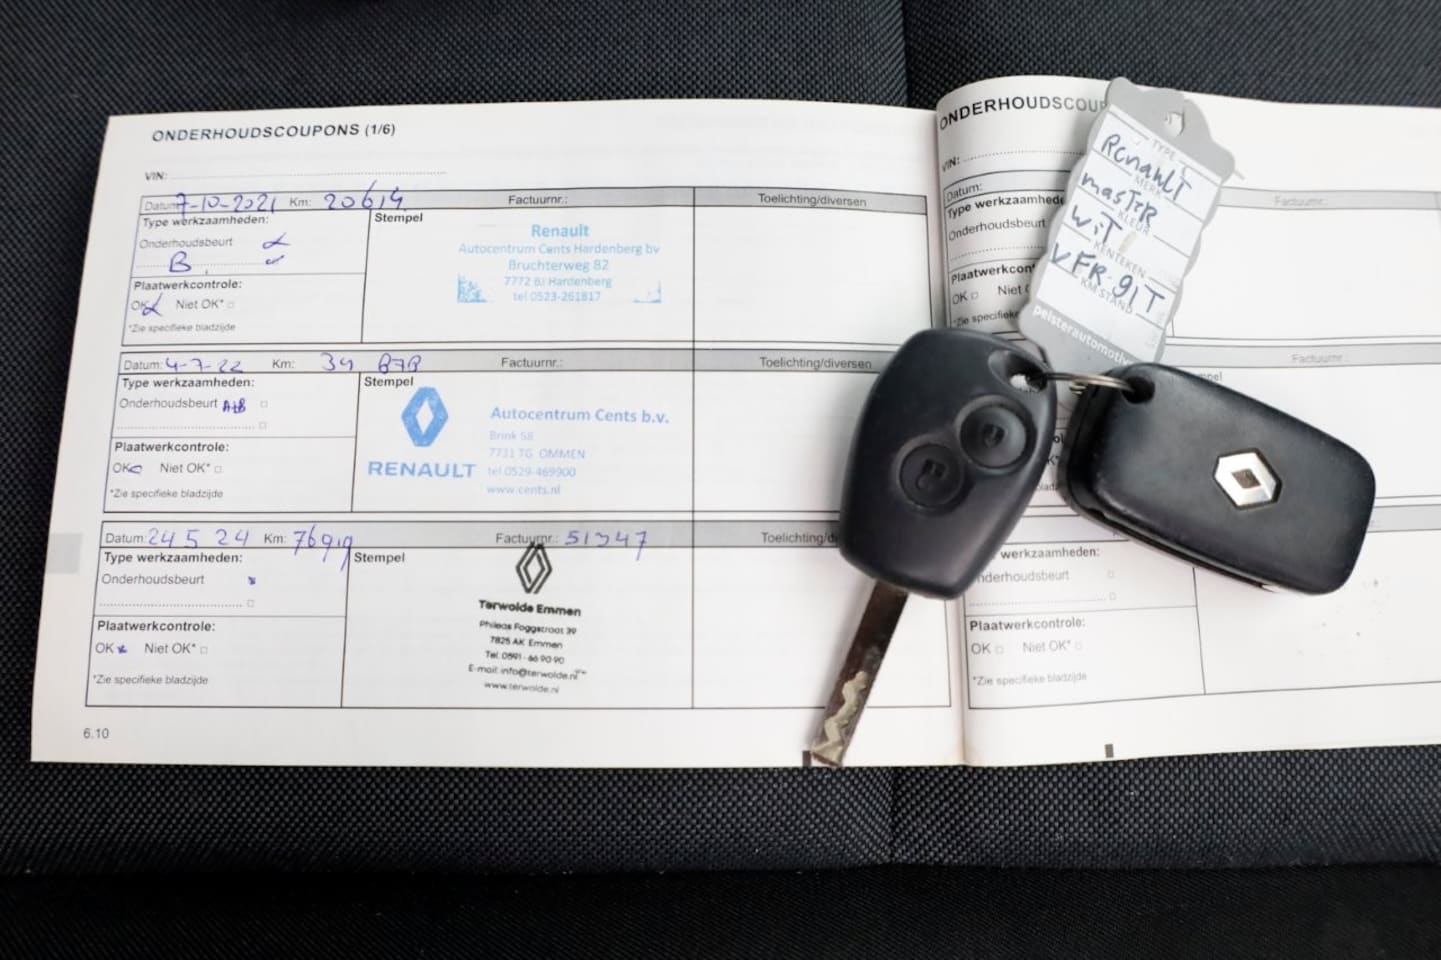 ONDERHOUDSCOUPONS (1/6)
VIN:
Datum: 7-10-2021 Km: 20614 Factuurnr.: Toelichting/diversen
Type werkzaamheden: Stempel
Onderhoudsbeurt
B
Plaatwerkcontrole:
OK Niet OK*
*Zie specifieke bladzijde
Renault
Autocentrum Cents Hardenberg bv
Bruchterweg 82
7772 BJ Hardenberg
tel 0523-261817
Datum: 4-7-22 Km: Factuurnr.: Toelichting/diversen
Type werkzaamheden: Stempel
Onderhoudsbeurt A+B
Plaatwerkcontrole:
OK Niet OK*
*Zie specifieke bladzijde
RENAULT
Autocentrum Cents b.v.
Brink 58
7731 TG OMMEN
tel 0529-469900
www.cents.nl
Datum: 24 5 24 Km: Factuurnr.: Toelichting/di
Type werkzaamheden: Stempel
Onderhoudsbeurt
Plaatwerkcontrole:
OK Niet OK*
*Zie specifieke bladzijde
Terwolde Emmen
Phileas Foggstraat 39
7825 AK Emmen
Tel. 0591 - 66 90 90
E-mail: info@terwolde.nl
www.terwolde.nl
6.10
ONDERHOUDSCOUP
VIN:
Datum: Factuurnr.:
Type werkzaamhede
Onderhoudsbeurt
Plaatwerkcon
OK Niet
*Zie specifieke
Factuurnr.:
werkzaamheden:
nderhoudsbeurt
Plaatwerkcontrole:
OK Niet OK*
*Zie specifieke bladzijde
TYPE
Renault
MERK
master
KLEUR
wit
KENTEKEN
VFR-91T
KM STAND
pelsterautomotive